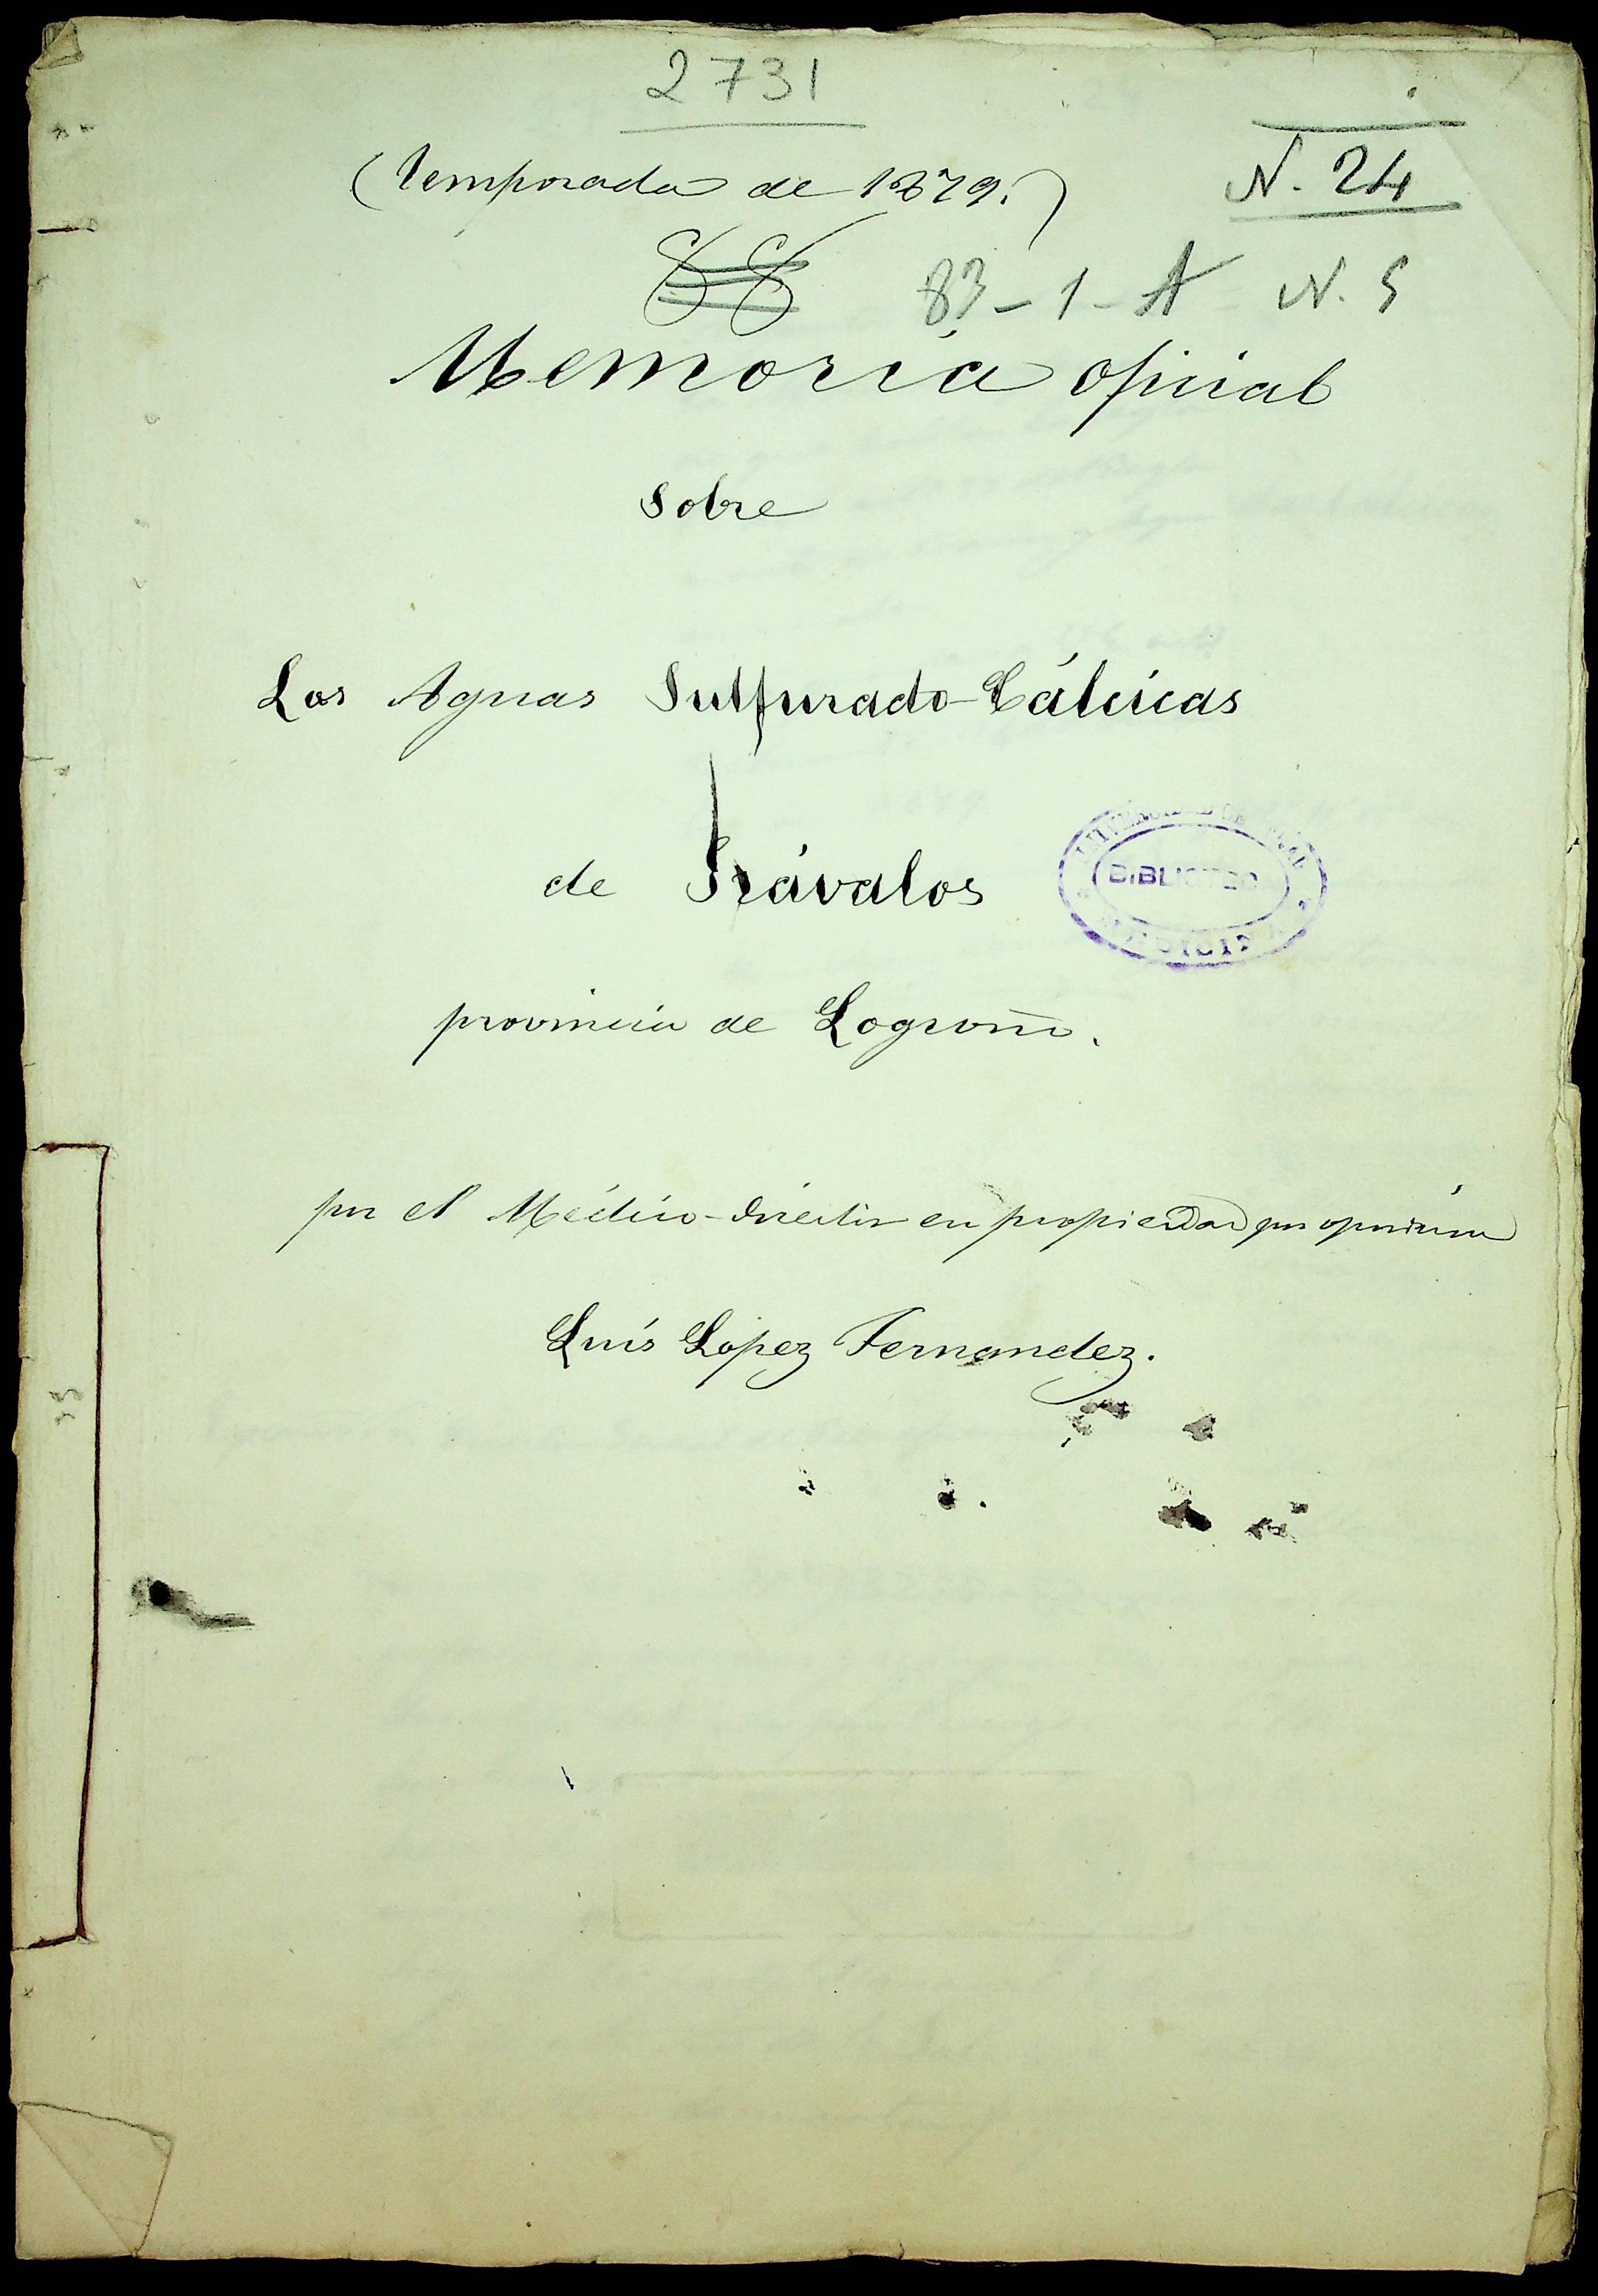 2731
(Temporada de 1879.)
N. 24
83-1-A N. 5
Memoria oficial
sobre
Las Aguas Sulfurado-Cálcicas
de Grávalos
BIBLIOTECA
MEDICINA
provincia de Logroño.
por el Médico-Director en propiedad por oposición
Luís Lopez Fernandez.